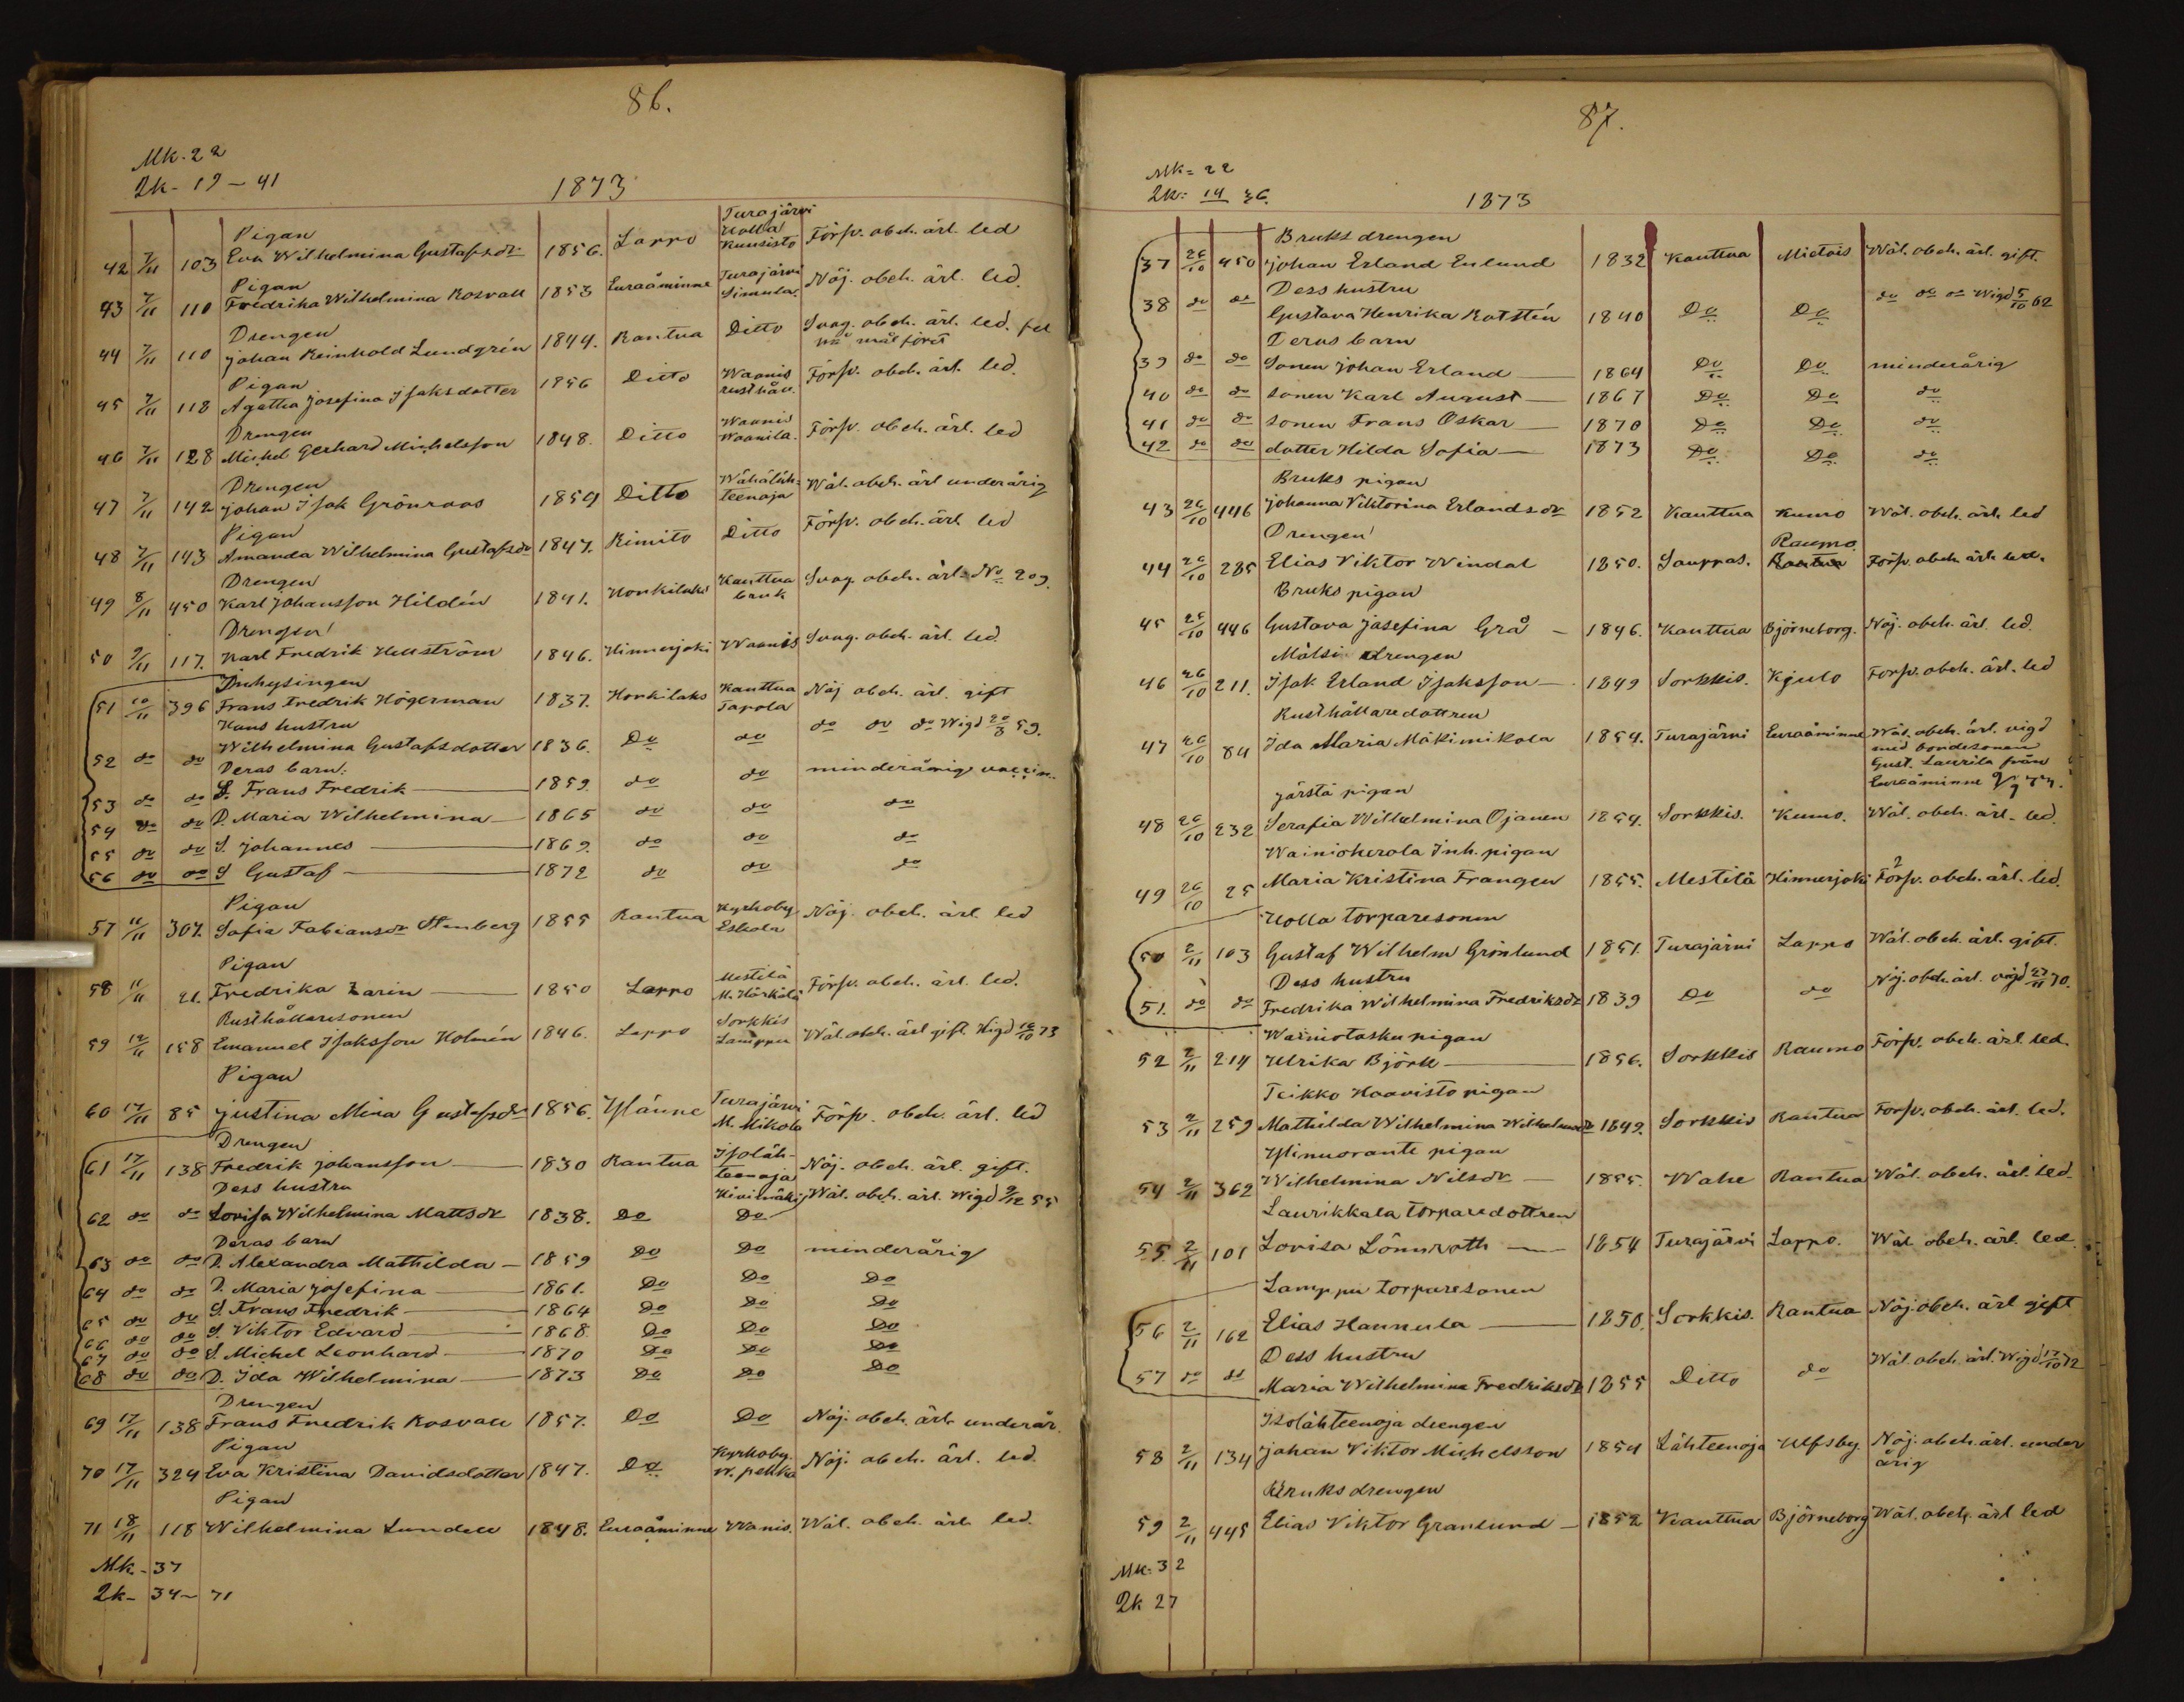 86.
Mk. 22
Qk - 19 - 41
1873
Pigan
42 7/11 103 Eva Wilhelmina Gustafsdr 1856. Lappo Turajärvi Uolla Kuusisto Förs. obeh. ärl. led
Pigan
43 7/11 110 Fredrika Wilhelmina Rosvall 1853 Euraåminne Turajärvi Simula. Nöj. obeh. ärl. led.
Drengen
44 7/11 110 Johan Reinhold Lundgrén 1844. Rantua Ditto Svag. obeh. ärl. led.
Pigan
45 7/11 118 Agatha Josefina Isaksdotter 1856 Ditto Waanis rusthåll. Försv. obeh. ärl. led.
Drengen
46 7/11 128 Michel Gerhard Michelsson 1848. Ditto Waanis Waanila. Försv. obeh. ärl. led
Drengen
47 7/11 142 Johan Isak Grönroos 1854 Ditto Wähäläh-teenoja Wäl. obeh. ärl underårig
Pigan
48 7/11 143 Amanda Wilhelmina Gustafsdr 1847. Kimito Ditto Försv. obeh. ärl. led
Drengen
49 8/11 450 Karl Johansson Hildén 1841. Honkilaks Kauttua bruk Svag. obeh. ärl. No 209.
Drengen
50 9/11 117. Karl Fredrik Hellström 1846. Hinnerjoki Waanis Svag. obeh. ärl. led.
Inhysingen
51 10/11 396 Frans Fredrik Högerman 1837. Honkilaks Kauttua Tapola Nöj obeh. ärl. gift
Hans hustru
52 do do Wilhelmina Gustafsdotter 1836. Do do do do do Wigd 20/3 59.
Deras barn:
53 do do S. Frans Fredrik 1859. do do minderårig vaccin.
54 do do D. Maria Wilhelmina 1865 do do do
55 do do S. Johannes 1869. do do do
56 do do S Gustaf 1872 do do do
Pigan
57 11/11 307. Sofia Fabiansdr Stenberg 1855 Rantua Kyrkoby Eskola Nöj. obeh. ärl. led
Pigan
58 11/11 21. Fredrika Karin 1850 Lappo Mestilä M. Härkälä Försv. obeh. ärl. led.
Rusthållaresonen
59 12/11 158 Emanuel Isaksson Holmén 1846. Lappo Sorkkis Lamppu Wäl. obeh. ärl gift. Wigd 16/10 73
Pigan
60 17/11 85 Justina Mina Gustafsdr 1856. Yläinne Turajärvi M. Mikola Försv. obeh. ärl. led
Drengen
61 17/11 138 Fredrik Johansson 1830 Rantua Isoläh-teenoja Nöj. obeh. ärl. gift.
Dess hustru
62 do do Lovisa Wilhelmina Mattsdr 1838. Do Kivimäki Do Wäl. obeh. ärl. Wigd 9/12 55
Deras barn
63 do do D. Alexandra Mathilda 1859 Do Do minderårig
64 do do D. Maria Josefina 1861. Do Do Do
65 do do S. Frans Fredrik 1864 Do Do Do
66 do do S. Viktor Edvard 1868 Do Do Do
67 do do S. Michel Leonhard 1870 Do Do Do
68 do do D. Ida Wilhelmina 1873 Do Do Do
Drengen
69 17/11 138 Frans Fredrik Rosvall 1857. Do Do Nöj. obeh. ärl underår.
Pigan
70 17/11 324 Eva Kristina Davidsdotter 1847. Do Kyrkoby. W. pekka Nöj. obeh. ärl. led.
Pigan
71 18/11 118 Wilhelmina Lundell 1848. Euraåminne Wanis. Wäl. obeh. ärl. led.
Mk. - 37
Qk - 34 - 71
87.
Mk = 22
Qk = 14 36.
1873
Bruks drengen
37 26/10 450 Johan Erland Enlund 1832 Kauttua Mietois Wäl. obeh. ärl. gift.
Dess hustru
38 do do Gustava Henrika Rotstén 1840 Do Do do do do Wigd 5/10 62
Deras barn
39 do do Sonen Johan Erland 1864 Do Do minderårig
40 do do sonen Karl August 1867 Do Do do
41 do do sonen Frans Oskar 1870 Do Do do
42 do do dotter Hilda Sofia 1873 Do Do do
Bruks pigan
43 26/10 446 Johanna Viktorina Erlandsdr 1852 Kauttua Kumo Wäl. obeh. ärl. led
Drengen
44 26/10 285 Elias Viktor Windal 1850. Sauppas. Raumo Rantua Försv. obeh. ärl. led.
Bruks pigan
45 26/10 446 Gustava Josefina Grå 1846. Kauttua Björneborg. Nöj. obeh. ärl. led.
Mälsi drengen
46 26/10 211. Isak Erland Isaksson 1849 Sorkkis. Kjulo Försv. obeh. ärl. led
Rusthållaredottren
47 26/10 84 Ida Maria Mäkimikola 1854. Turajärvi Euraåminne Wäl. obeh. ärl. vigd
med bondesonen
Gust. Laurila från
Euraåminne
Järstä pigan
48 26/10 232 Serafia Wilhelmina Ojanen 1854. Sorkkis. Kumo. Wäl. obeh. ärl. led.
Wainioherola Inh. pigan
49 26/10 25 Maria Kristina Frangen 1855. Mestilä Hinnerjoki Försv. obeh. ärl. led.
Uolla torparesonen
50 2/11 103 Gustaf Wilhelm Grönlund 1851. Turajärvi Lappo Wäl. obeh. ärl. gift.
Dess hustru
51. do do Fredrika Wilhelmina Fredriksdr 1839 Do do Nöj. obeh. ärl. vigd 27/11 70.
Wainiotasku pigan
52 2/11 214 Ulrika Björk 1856. Sorkkis Raumo Försv. obeh. ärl. led.
Teikko Haavisto pigan
53 2/11 259 Mathilda Wilhelmina Wilhelmsdr 1849. Sorkkis Rantua Försv. obeh. ärl. led.
Ylinuorante pigan
54 2/11 362 Wilhelmina Nilsdr 1855. Wahe Rantua Wäl. obeh. ärl. led.
Laurikkala torparedottren
55 2/11 101 Lovisa Lönnroth 1854 Turajärvi Lappo. Wäl obeh. ärl. led.
Lamppu torparesonen
56 2/11 162 Elias Hannula 1850. Sorkkis. Rantua Nöj. obeh. ärl gift
Dess hustru
57 do do Maria Wilhelmina Fredriksdr 1855 Ditto do Wäl. obeh. ärl. Wigd 17/10 72
Isolähteenoja drengen
58 2/11 134 Johan Viktor Michelsson 1854 Lähteenoja Ulfsby. Nöj. obeh. ärl. under
årig
Bruks drengen
59 2/11 445 Elias Viktor Granlund 1852 Kauttua Björneborg Wäl. obeh. ärl led
Mk. 32
Qk 27